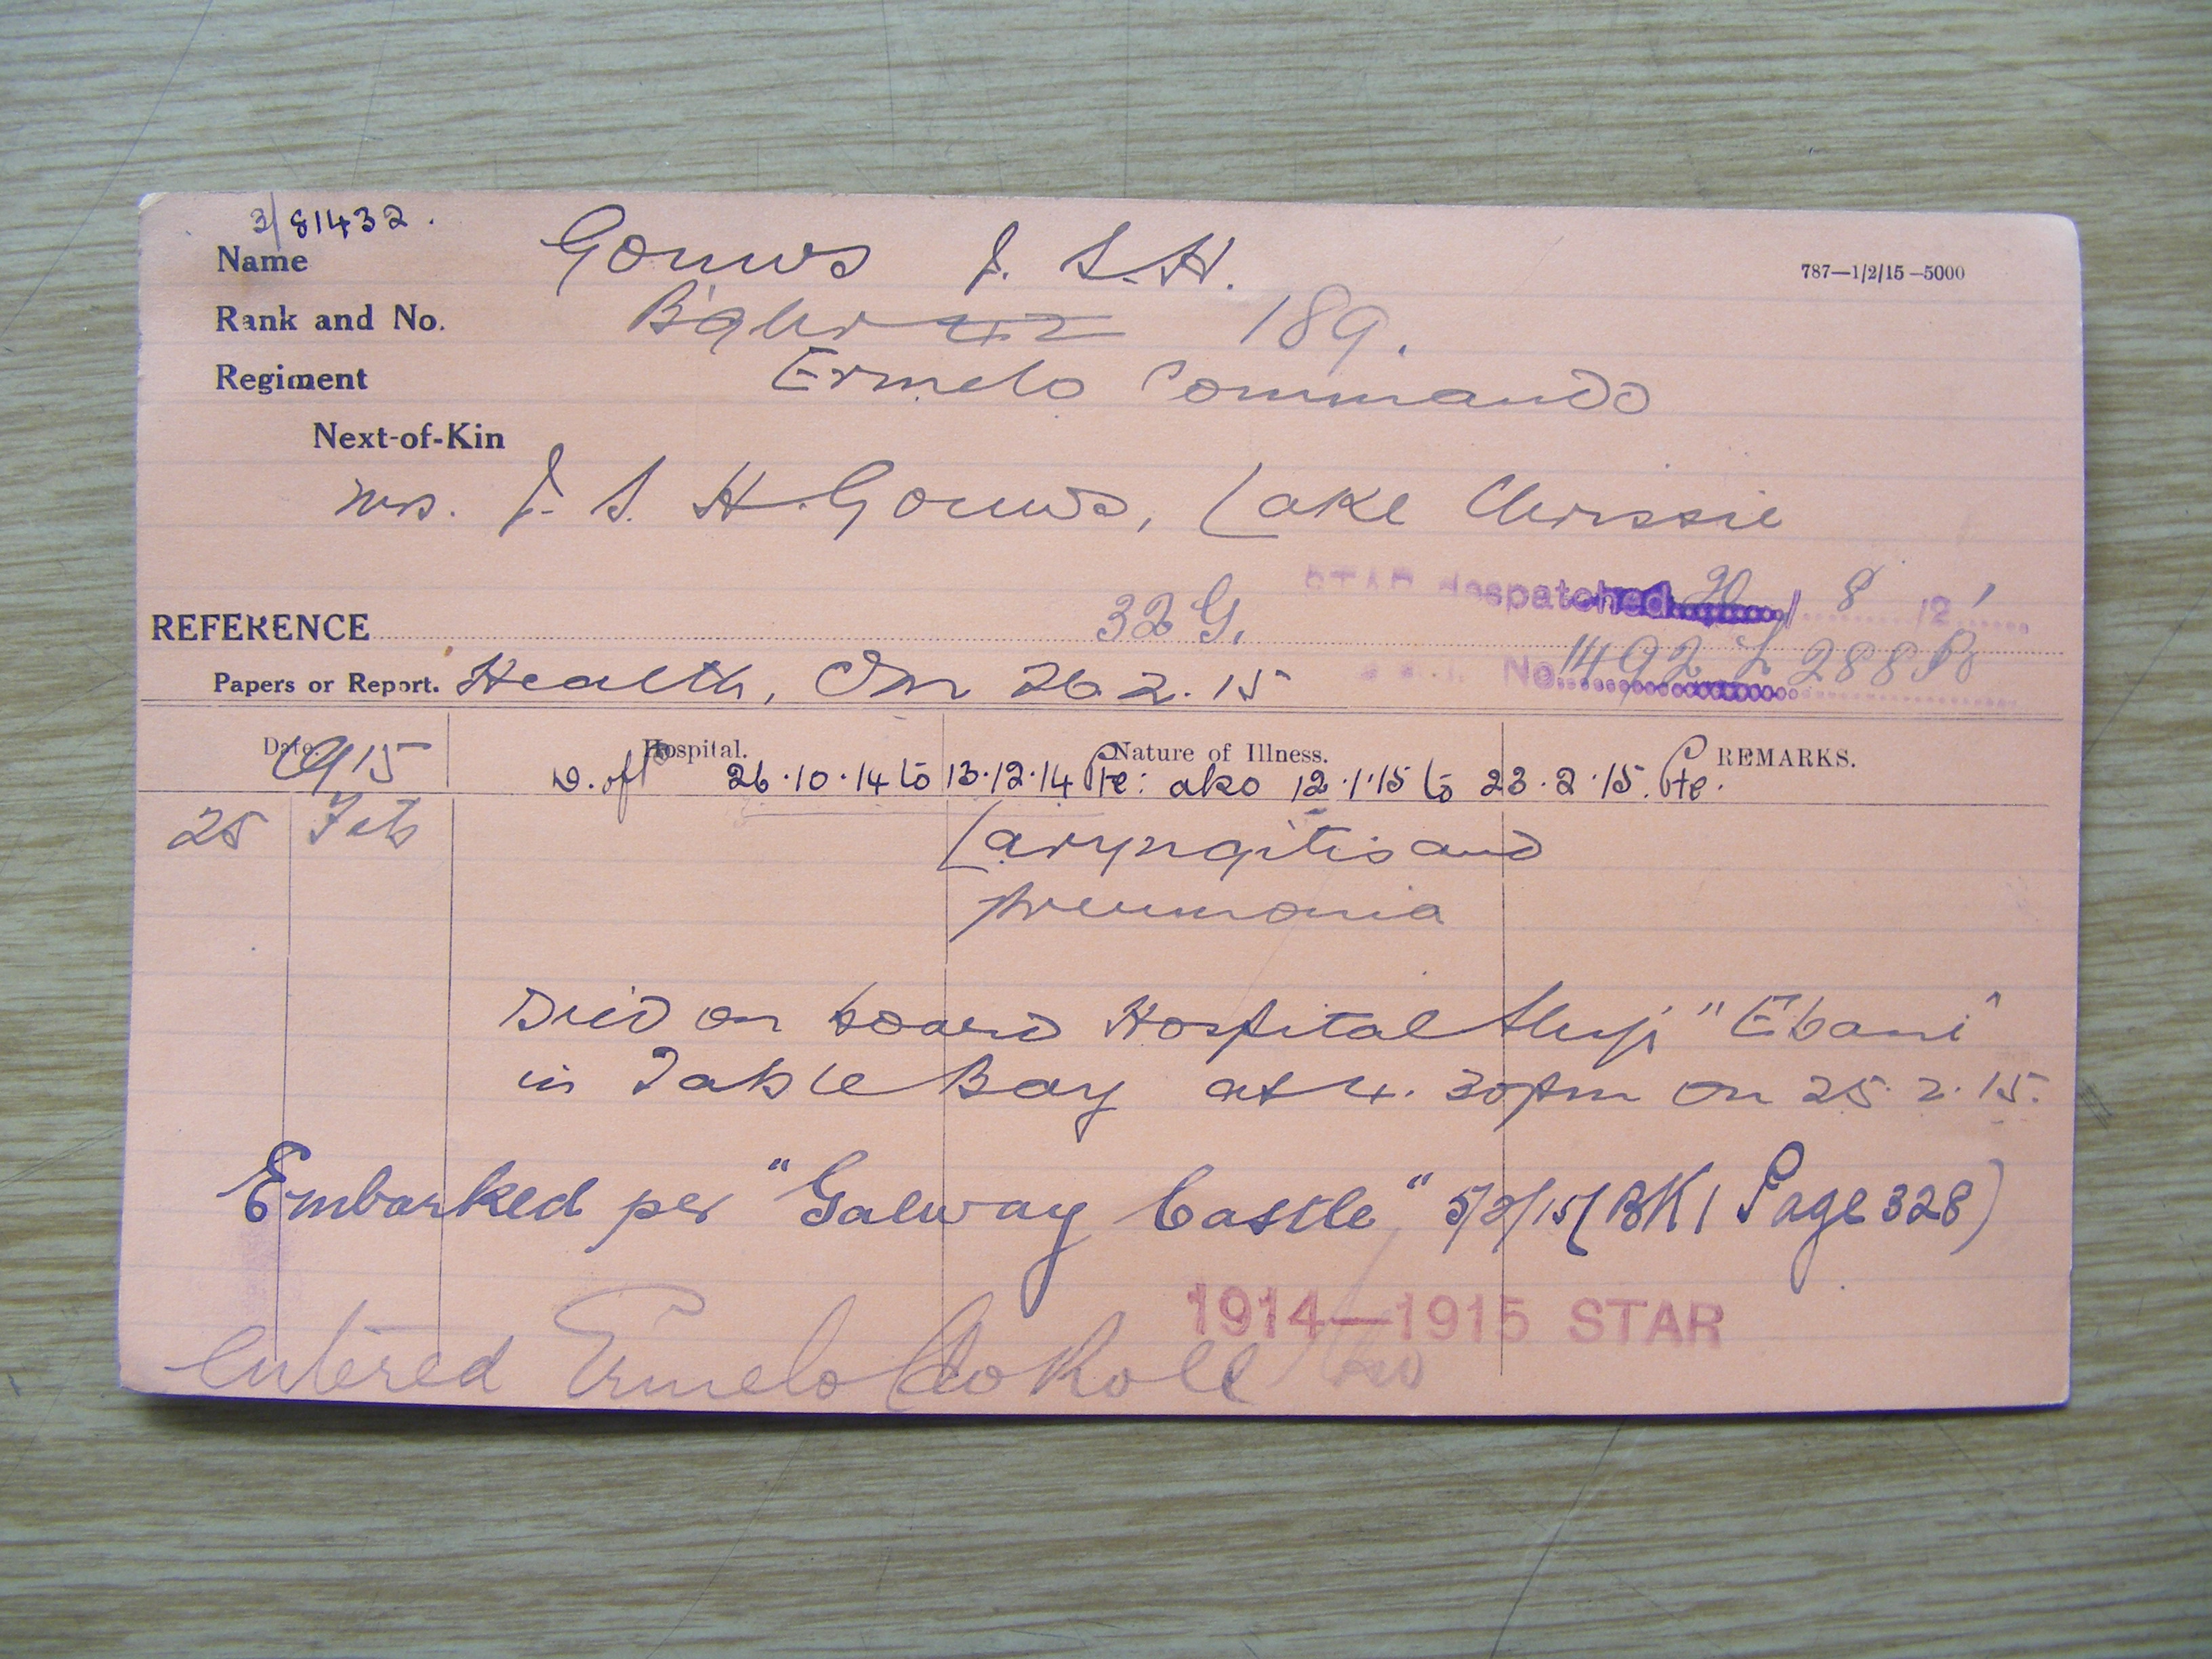 3/81432.
Name Gouws J. S. H.
787—1/2/15—5000
Rank and No. Bgher 42 189.
Regiment Ermelo Commando
Next-of-Kin
Mrs. J. S. H. Gouws, Lake Chrissie
STAR despatched 20 8 2
REFERENCE 32 G.
No. 1492 288
Papers or Report. Health, Om 26.2.15
Date. Hospital. Nature of Illness. REMARKS.
1915 26.10.14 to 13.12.14 Pte: also 12.1.15 to 23.2.15. Pte.
25 Feb Laryngitis and
pneumonia
Died on board Hospital Ship "Ebani"
in Table Bay at 4.30pm on 25.2.15.
Embarked per "Galway Castle" 5/2/15 (BK 1 Page 328)
1914—1915 STAR
Entered Ermelo Cdo Roll